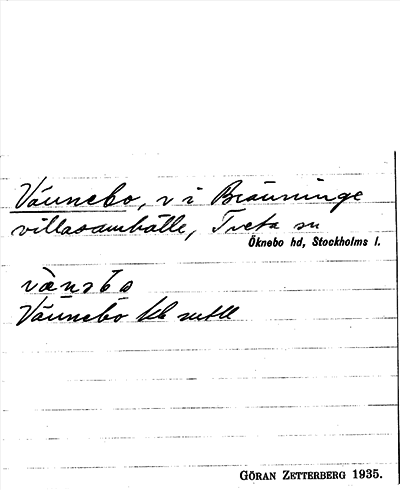 Vännebo, v i Bränninge
villasamhälle, Tveta sn
Öknebo hd, Stockholms l.
Vännebo
GÖRAN ZETTERBERG 1935.